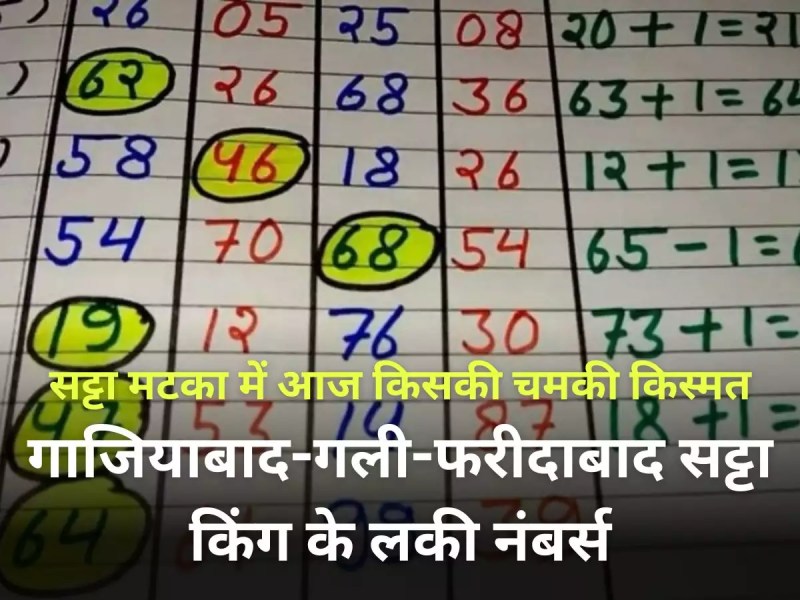 26 05 25 08 20+1=21
) 62 26 68 36 63+1=64
58 46 18 26 12+1=1
54 70 68 54 65-1=
19 12 76 30 73+1=
सट्टा मटका में आज किसकी चमकी किस्मत
53 14 87 18+1=
गाजियाबाद-गली-फरीदाबाद सट्टा
64
किंग के लकी नंबर्स